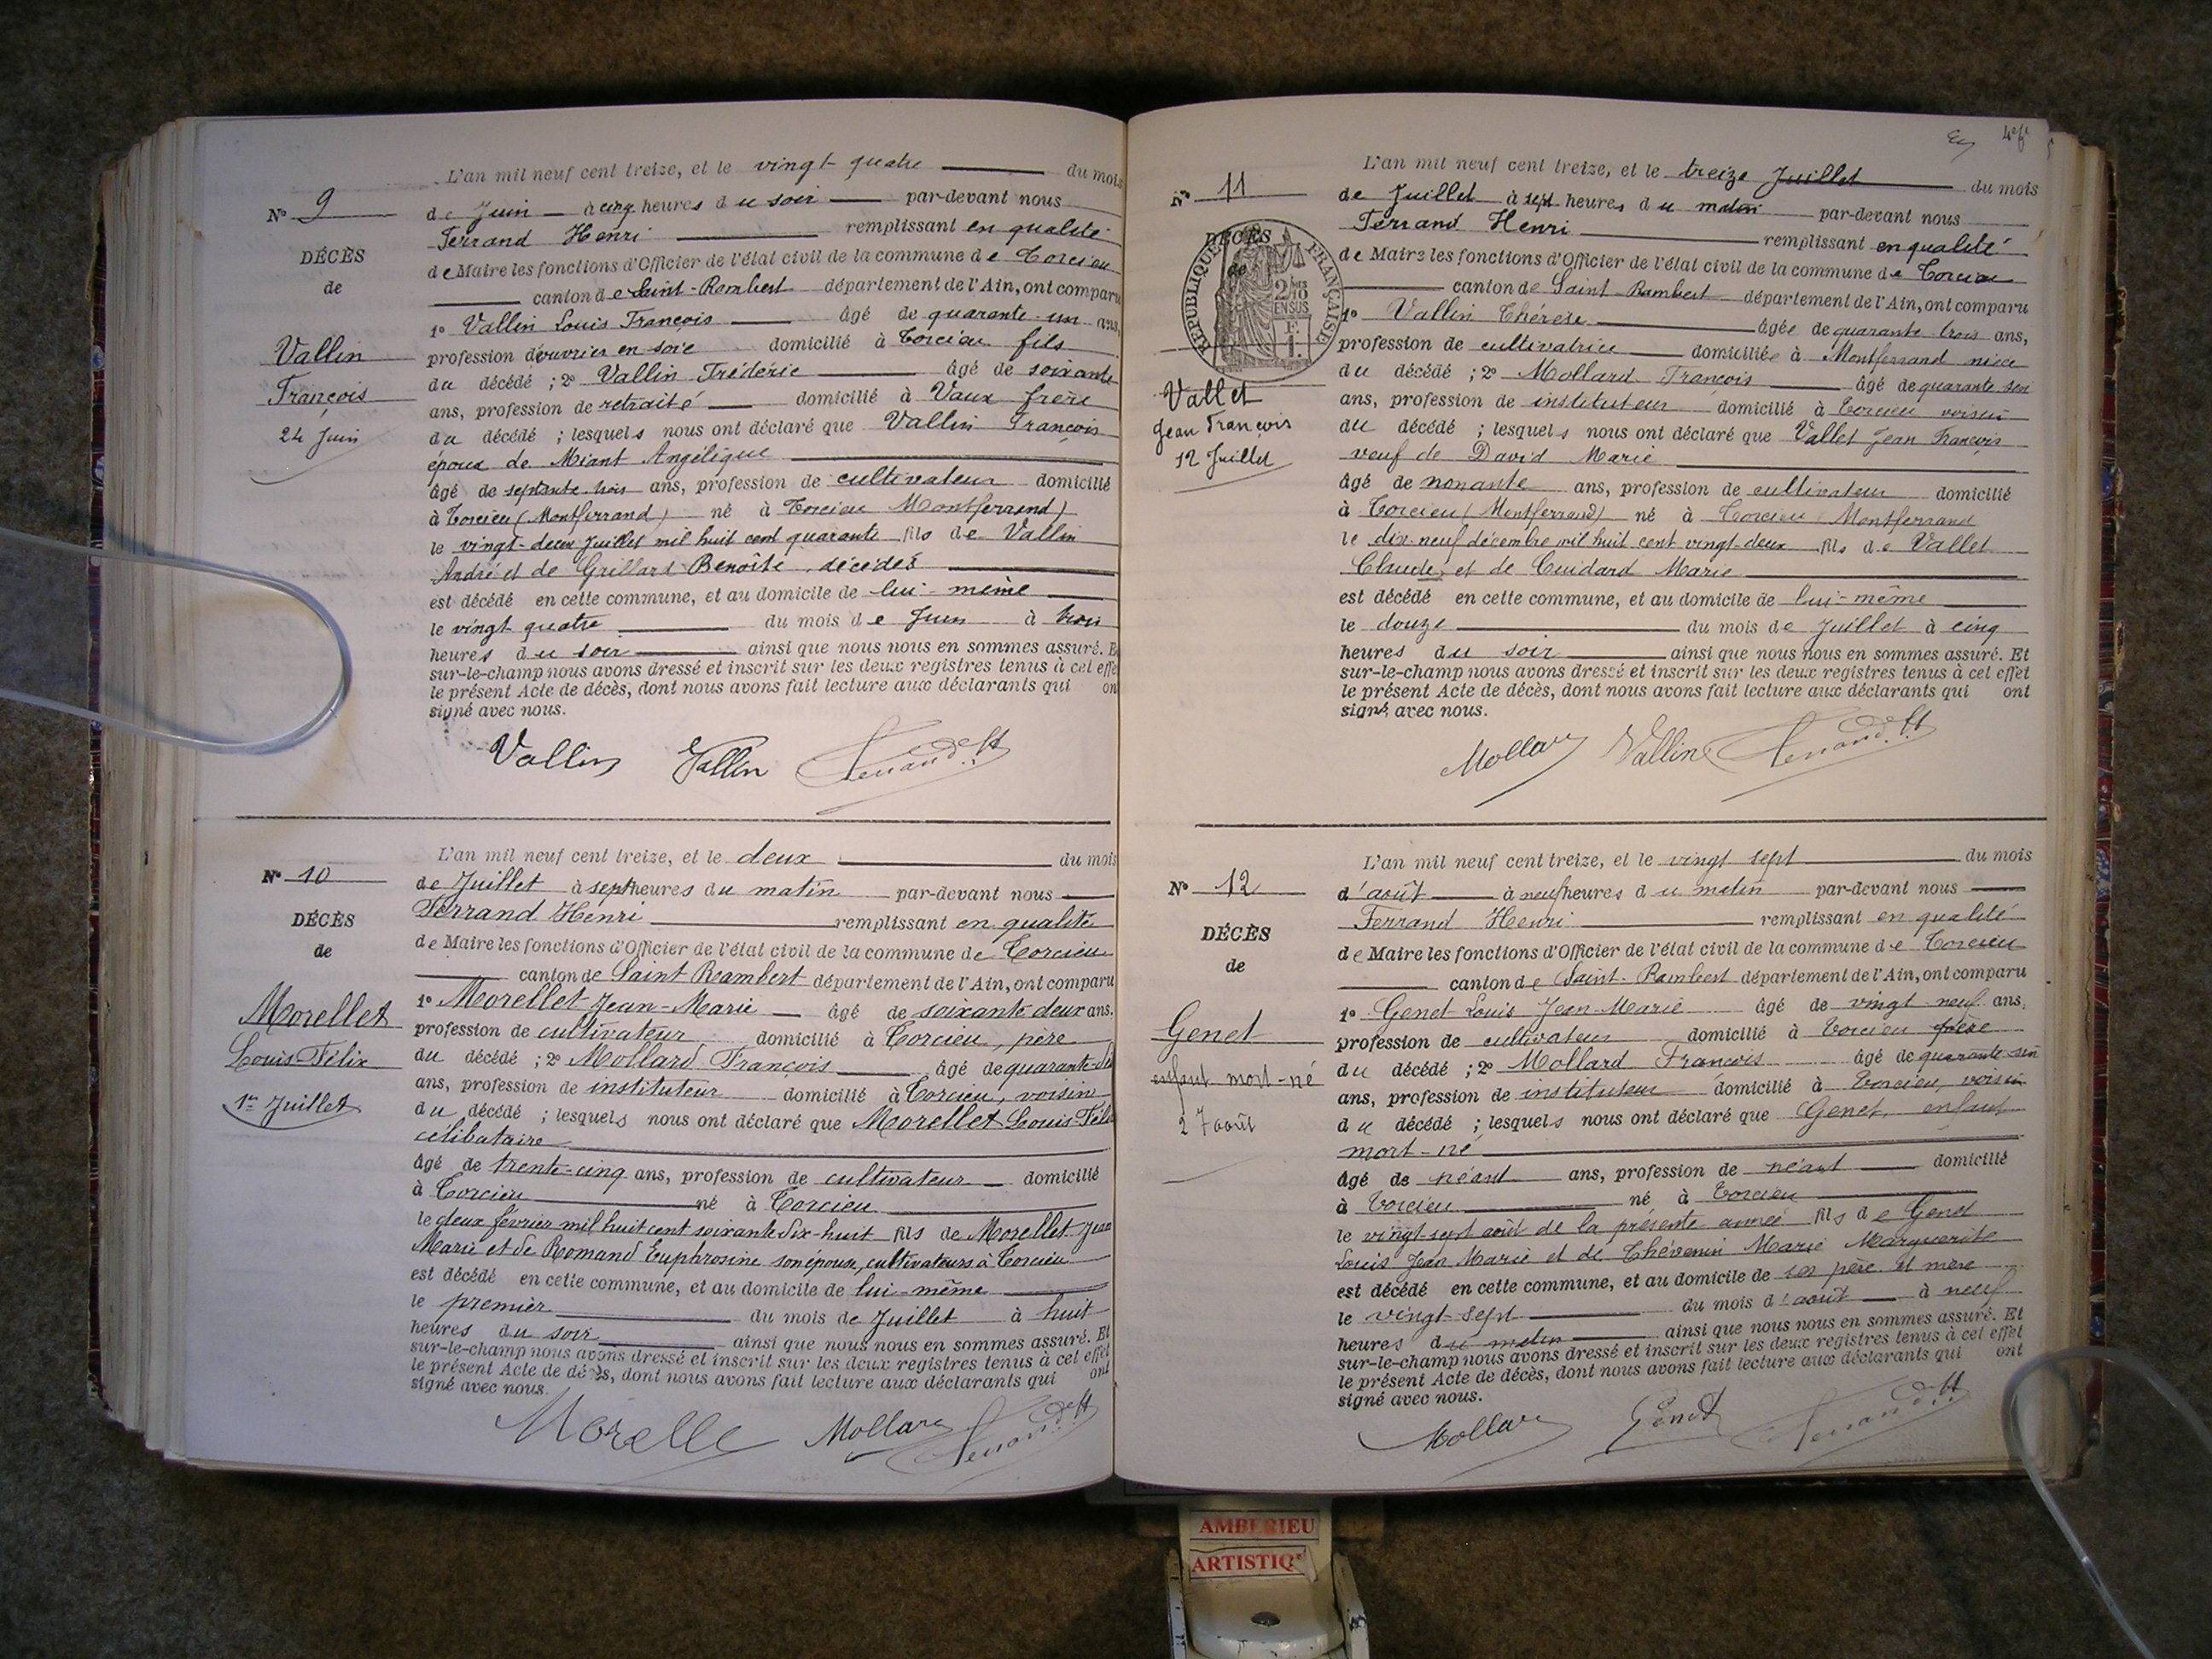 L'an mil neuf cent treize, et le vingt-quatre du mois
N° 9
de Juin à cinq heures du soir par-devant nous
Ferrand Henri remplissant en qualité
DÉCÈS
de Maire les fonctions d'Officier de l'état civil de la commune de Torcieu
de
canton de Saint-Rambert département de l'Ain, ont comparu
1° Vallin Louis François âgé de quarante-un ans,
Vallin
profession d'ouvrier en soie domicilié à Torcieu fils
du décédé ; 2° Vallin Fréderic âgé de soixante
François
ans, profession de retraité domicilié à Vaux frère
24 Juin
du décédé ; lesquels nous ont déclaré que Vallin François
époux de Miant Angélique
âgé de septante-trois ans, profession de cultivateur domicilié
à Torcieu (Montferrand) né à Torcieu Montferrand)
le vingt-deux Juillet mil huit cent quarante fils de Vallin
André et de Grillard Benoîte décédés
est décédé en cette commune, et au domicile de lui-même
le vingt quatre du mois de Juin à trois
heures du soir ainsi que nous nous en sommes assuré. E
sur-le-champ nous avons dressé et inscrit sur les deux registres tenus à cet effe
le présent Acte de décès, dont nous avons fait lecture aux déclarants qui on
signé avec nous.
Vallin Vallin Ferrand
L'an mil neuf cent treize, et le deux du mois
N° 10
de Juillet à sept heures du matin par-devant nous
Ferrand Henri remplissant en qualité
DÉCÈS
de Maire les fonctions d'Officier de l'état civil de la commune de Torcieu
de
canton de Saint Rambert département de l'Ain, ont comparu
1° Morellet Jean-Marie âgé de soixante-deux ans.
Morellet
profession de cultivateur domicilié à Torcieu, père
Louis Félix
du décédé ; 2° Mollard François âgé de quarante-six
ans, profession de instituteur domicilié à Torcieu, voisin
1er Juillet
du décédé ; lesquels nous ont déclaré que Morellet Louis-Féli
célibataire
âgé de trente-cinq ans, profession de cultivateur domicilié
à Torcieu né à Torcieu
le deux février mil huit cent soixante dix-huit fils de Morellet Jean
Marie et de Romand Euphrosine son épouse, cultivateurs à Torcieu
est décédé en cette commune, et au domicile de lui-même
le premier du mois de Juillet à huit
heures du soir ainsi que nous nous en sommes assuré. Et
sur-le-champ nous avons dressé et inscrit sur les deux registres tenus à cet effet
le présent Acte de décès, dont nous avons fait lecture aux déclarants qui ont
signé avec nous.
Morelle Mollard Ferrand
L'an mil neuf cent treize, et le treize Juillet du mois
N° 11
de Juillet à sept heures du matin par-devant nous
Ferrand Henri remplissant en qualité
DÉCÈS
de Maire les fonctions d'Officier de l'état civil de la commune de Torcieu
de
RÉPUBLIQUE FRANÇAISE
2/10
EN SUS
canton de Saint-Rambert département de l'Ain, ont comparu
1° Vallin Thérèse âgée de quarante trois ans,
profession de cultivatrice domiciliée à Montferrand nièce
du décédé ; 2° Mollard François âgé de quarante-six
Vallet
ans, profession de instituteur domicilié à Torcieu voisin
Jean François
du décédé ; lesquels nous ont déclaré que Vallet Jean François
12 Juillet
veuf de David Marie
âgé de nonante ans, profession de cultivateur domicilié
à Torcieu (Montferrand) né à Torcieu Montferrand
le dix-neuf décembre mil huit cent vingt-deux fils de Vallet
Claude, et de Cuidard Marie
est décédé en cette commune, et au domicile de lui-même
le douze du mois de Juillet à cinq
heures du soir ainsi que nous nous en sommes assuré. Et
sur-le-champ nous avons dressé et inscrit sur les deux registres tenus à cet effet
le présent Acte de décès, dont nous avons fait lecture aux déclarants qui ont
signé avec nous.
Mollard Vallin Ferrand
L'an mil neuf cent treize, et le vingt sept du mois
N° 12
d'août à neuf heures du matin par-devant nous
Ferrand Henri remplissant en qualité
DÉCÈS
de Maire les fonctions d'Officier de l'état civil de la commune de Torcieu
de
canton de Saint-Rambert département de l'Ain, ont comparu
1° Genet Louis Jean Marie âgé de vingt-neuf ans.
Genet
profession de cultivateur domicilié à Torcieu père
enfant mort-né
du décédé ; 2° Mollard François âgé de quarante-six
ans, profession de instituteur domicilié à Torcieu, voisin
27 août
du décédé ; lesquels nous ont déclaré que Genet, enfant
mort-né
âgé de néant ans, profession de néant domicilié
à Torcieu né à Torcieu
le vingt-sept août de la présente année fils de Genet
Louis Jean Marie et de Thévenin Marie Marguerite
est décédé en cette commune, et au domicile de ses père et mère
le vingt-sept du mois d'août à neuf
heures du matin ainsi que nous nous en sommes assuré. Et
sur-le-champ nous avons dressé et inscrit sur les deux registres tenus à cet effet
le présent Acte de décès, dont nous avons fait lecture aux déclarants qui ont
signé avec nous.
Mollard Genet Ferrand
AMBERIEU
ARTISTIQ